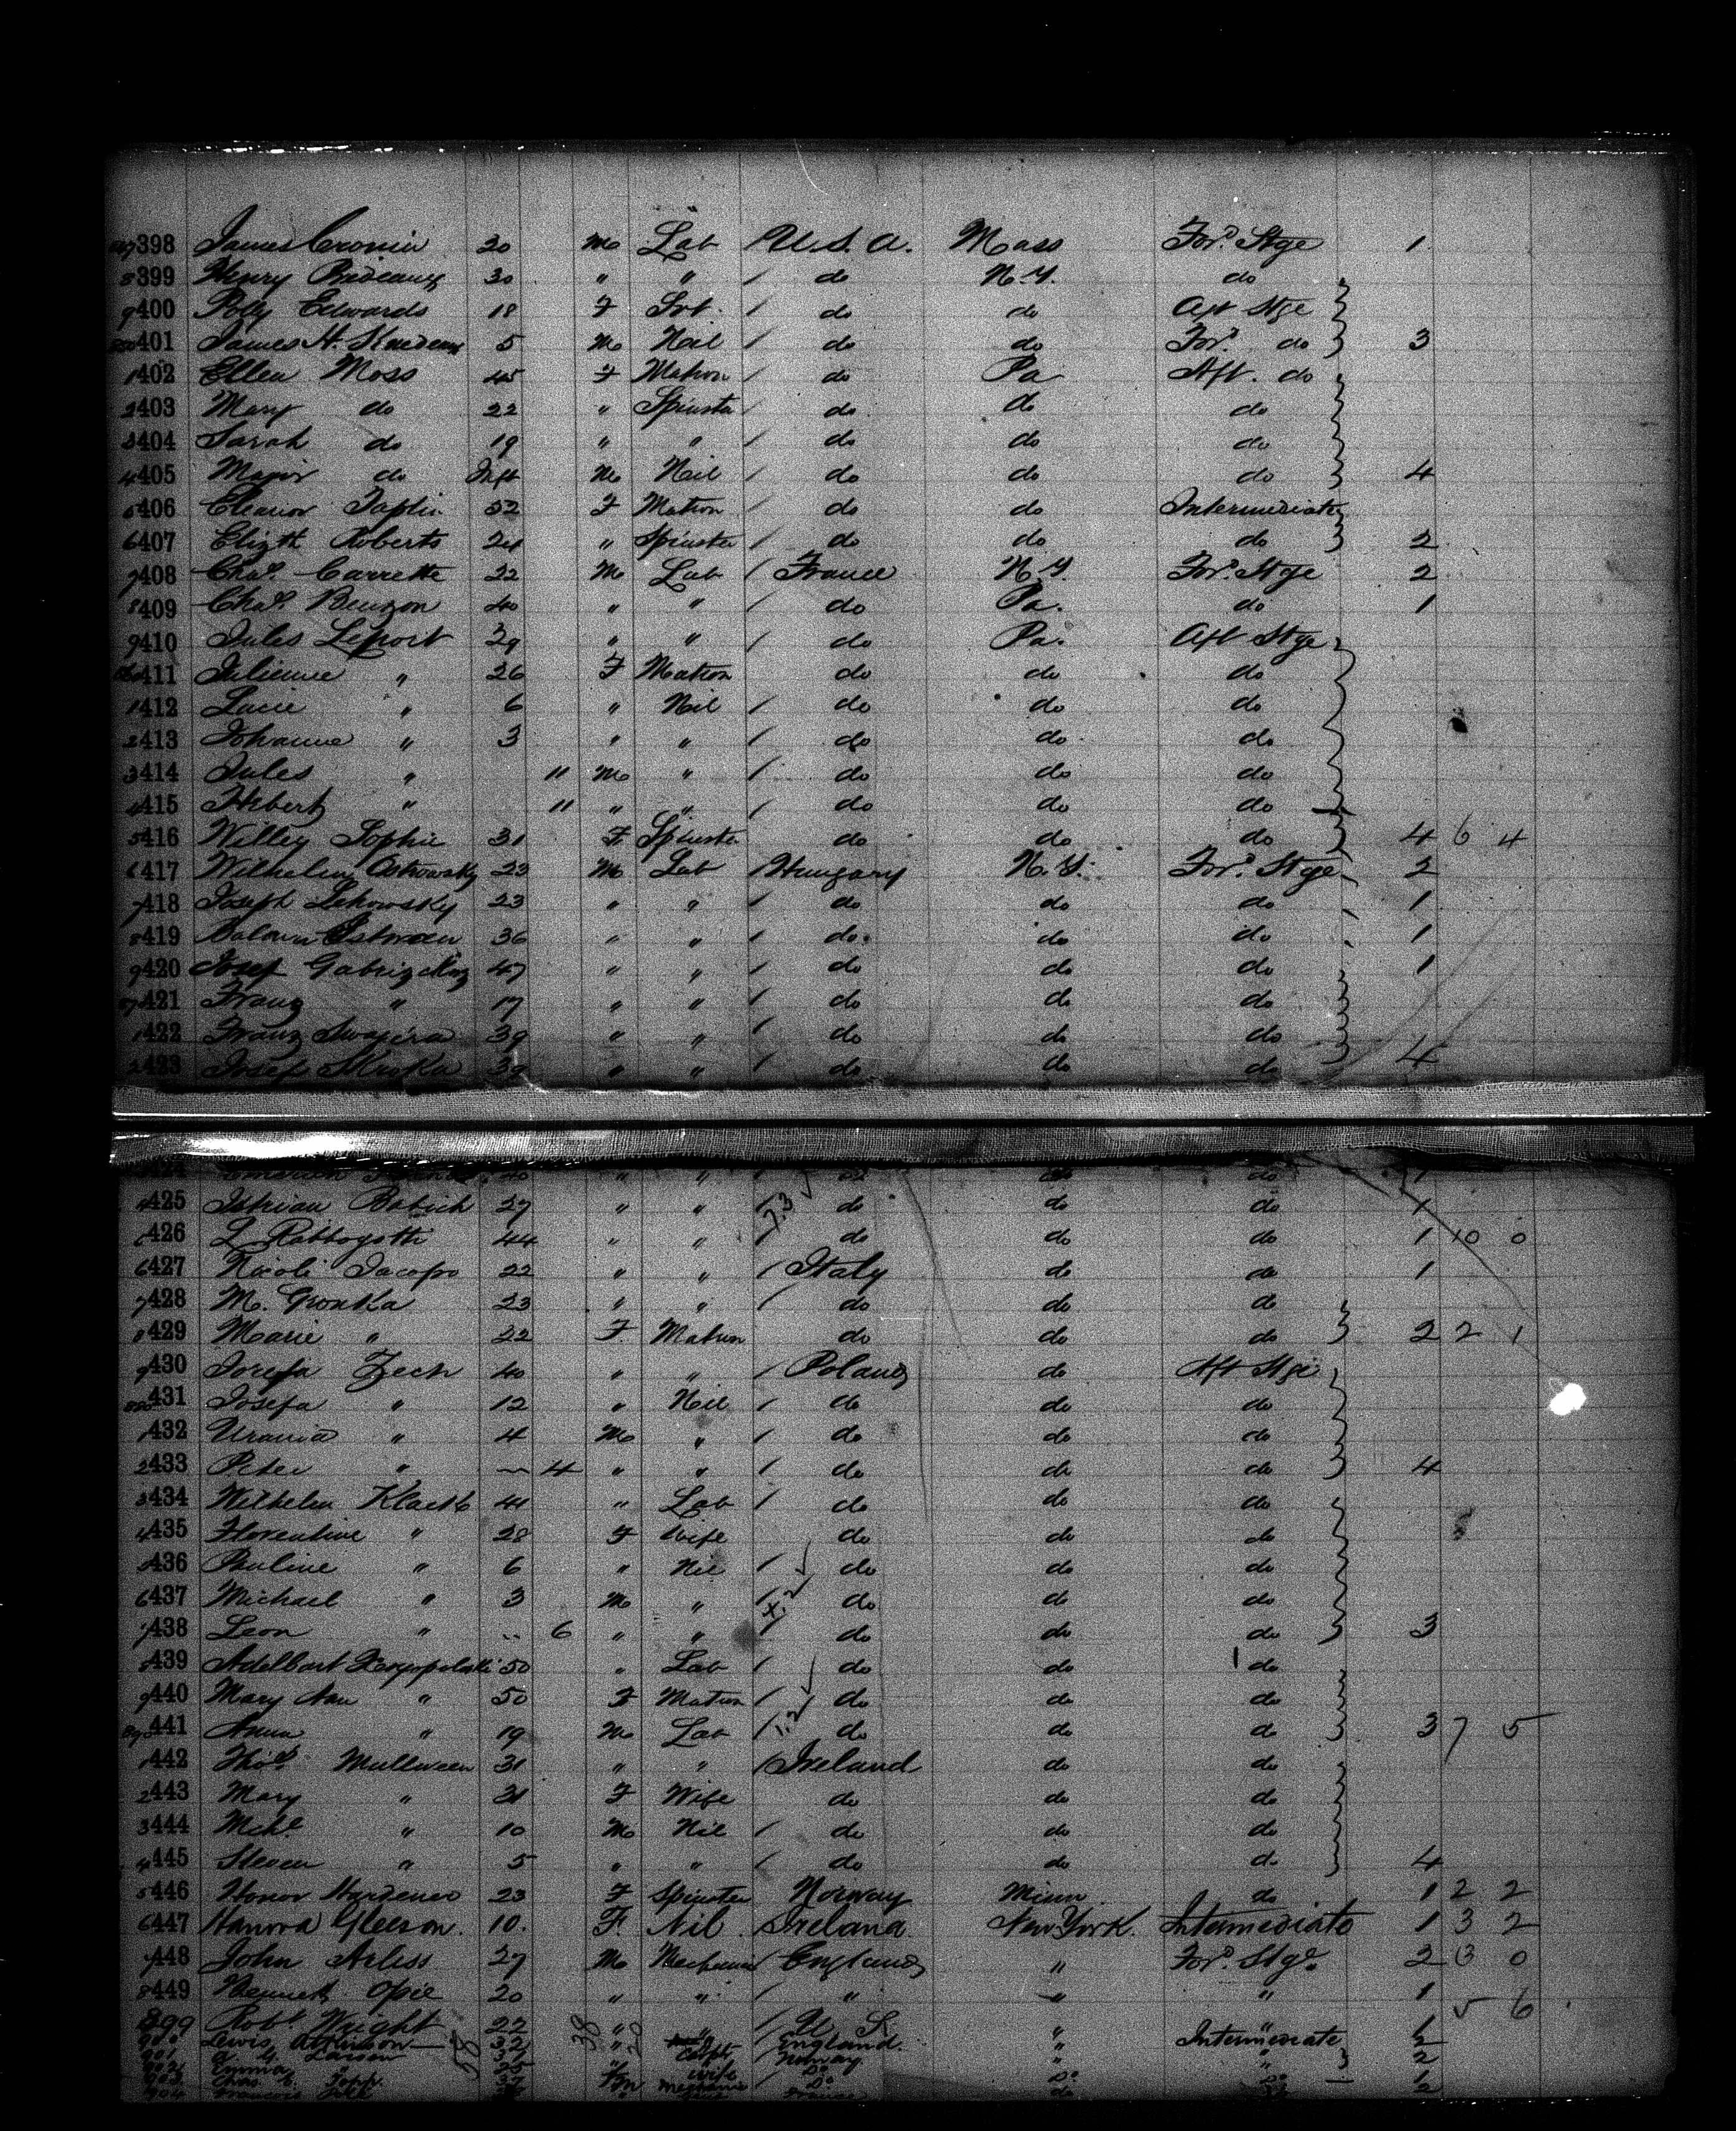 398 James Cronin 20 M Lab U.S.A. Mass For'd Stge 1
8 399 Henry 30 " " do N.Y. do
9 400 Polly Edwards 18 F Svt. do do Aft Stge
401 James H. 5 M Nil do do For'd do 3
1 402 Ellen Moss 45 F Matron do Pa Aft. do
2 403 Mary do 22 " Spinster do do do
3 404 Sarah do 19 " " do do do
4 405 Major do Inft M Nil do do do 4
5 406 Eleanor Taplin 52 F Matron do do Intermediate
6 407 Elizth Roberts 24 " Spinster do do do 2
7 408 Chas. Carrette 22 M Lab France N.Y. For'd Stge 2
8 409 Chas. Benzon 40 " " do Pa. do 1
9 410 Jules Leport 39 " " do Pa. Aft Stge
411 Julienne " 26 F Matron do do do
1 412 Lucie " 6 " Nil do do do
2 413 Johanne " 3 " " do do do
3 414 Jules " 11 M " do do do
4 415 Hebert " 11 " " do do do
5 416 Willey Sophie 31 F Spinster do do do 4 6 4
6 417 Wilhelm Ostrowsky 23 M Lab Hungary N.Y. For'd Stge 2
7 418 Joseph Lehowsky 23 " " do do do 1
8 419 36 " " do do do 1
9 420 Josef 47 " " do do do 1
421 Franz " 17 " " do do do
1 422 Franz 39 " " do do do
2 423 Josef 39 " " do do do 4
424 40 " " do do do 1
425 Babich 27 " " 7.3 do do do 1
426 L 44 " " do do do 1 10 0
6 427 Nicoli Jacopo 22 " " Italy do do 1
7 428 M. Gronka 23 " " do do do
8 429 Marie " 22 F Matron do do do 2 2 1
9 430 Josefa Zech 40 " " Poland do Aft Stge
431 Josefa " 12 " Nil do do do
1 432 Urania " 4 M " do do do
2 433 Peter " — 4 " " do do do 4
3 434 Wilhelm 41 " Lab do do do
4 435 Florentine " 28 F Wife do do do
5 436 Pauline " 6 " Nil do do do
6 437 Michael " 3 M " 4.2 do do do
7 438 Leon " .. 6 " " do do do 3
8 439 Adelbart 50 " Lab do do do
9 440 Mary Ann " 50 F Matron do do do
441 Anna " 19 M Lab 1.2 do do do 3 7 5
1 442 Thos. Mullween 31 " " Ireland do do
2 443 Mary " 31 F Wife do do do
3 444 Michl " 10 M Nil do do do
4 445 Steven " 5 " " do do do 4
5 446 Honor Hardener 23 F Spinster Norway Minn do 1 2 2
6 447 Hanora Gleeson. 10. F. Nil. Ireland. New York. Intermediate 1 3 2
7 448 John Arliss 27 M Mechanic England " For'd Stge. 2 3 0
8 449 Bennett Opie 20 " " " " " 1
899 Robt. Wright 22 " " U S. " " 1 5 6
900 Lewis 32 " England. " Intermediate 2
901 Larson " Norway " " 2
902 Emma " 25 Wife Do " "
903 Chas. E. 37 M Mechanic Do Do Do 1
904 Francis do 2
58 38